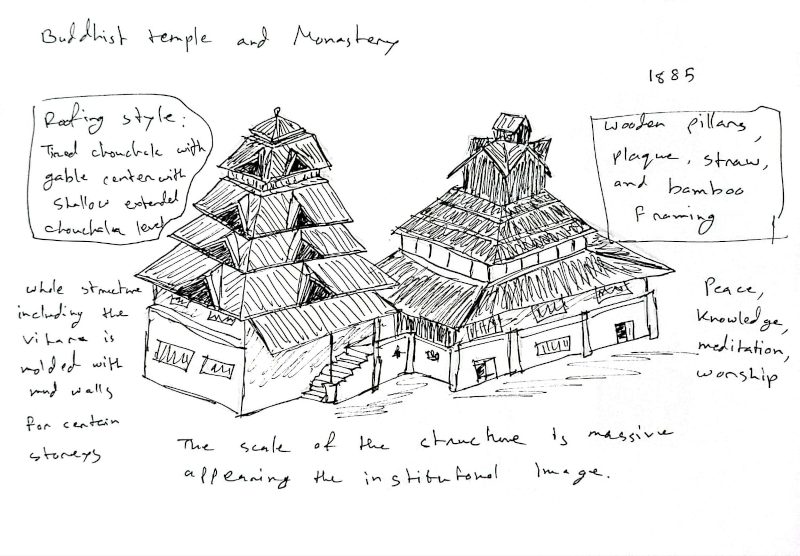 Buddhist temple and Monastery
1885
Roofing style:
Tired chouchala with
gable center with
shallow extended
chouchala level
wooden pillars,
plaque, straw,
and bamboo
framing
whole structure
including the
vihara is
molded with
mud walls
for certain
storeys
Peace,
knowledge,
meditation,
worship
The scale of the structure is massive
appearing the institutional image.